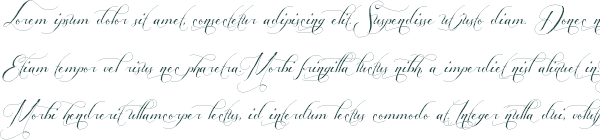 Lorem ipsum dolor sit amet, consectetur adipiscing elit. Suspendisse ut justo diam. Donec n
Etiam tempor vel risus nec pharetra. Morbi fringilla luctus nibh, a imperdiet nisl aliquet in
Morbi hendrerit ullamcorper lectus, id interdum lectus commodo at. Integer nulla dui,